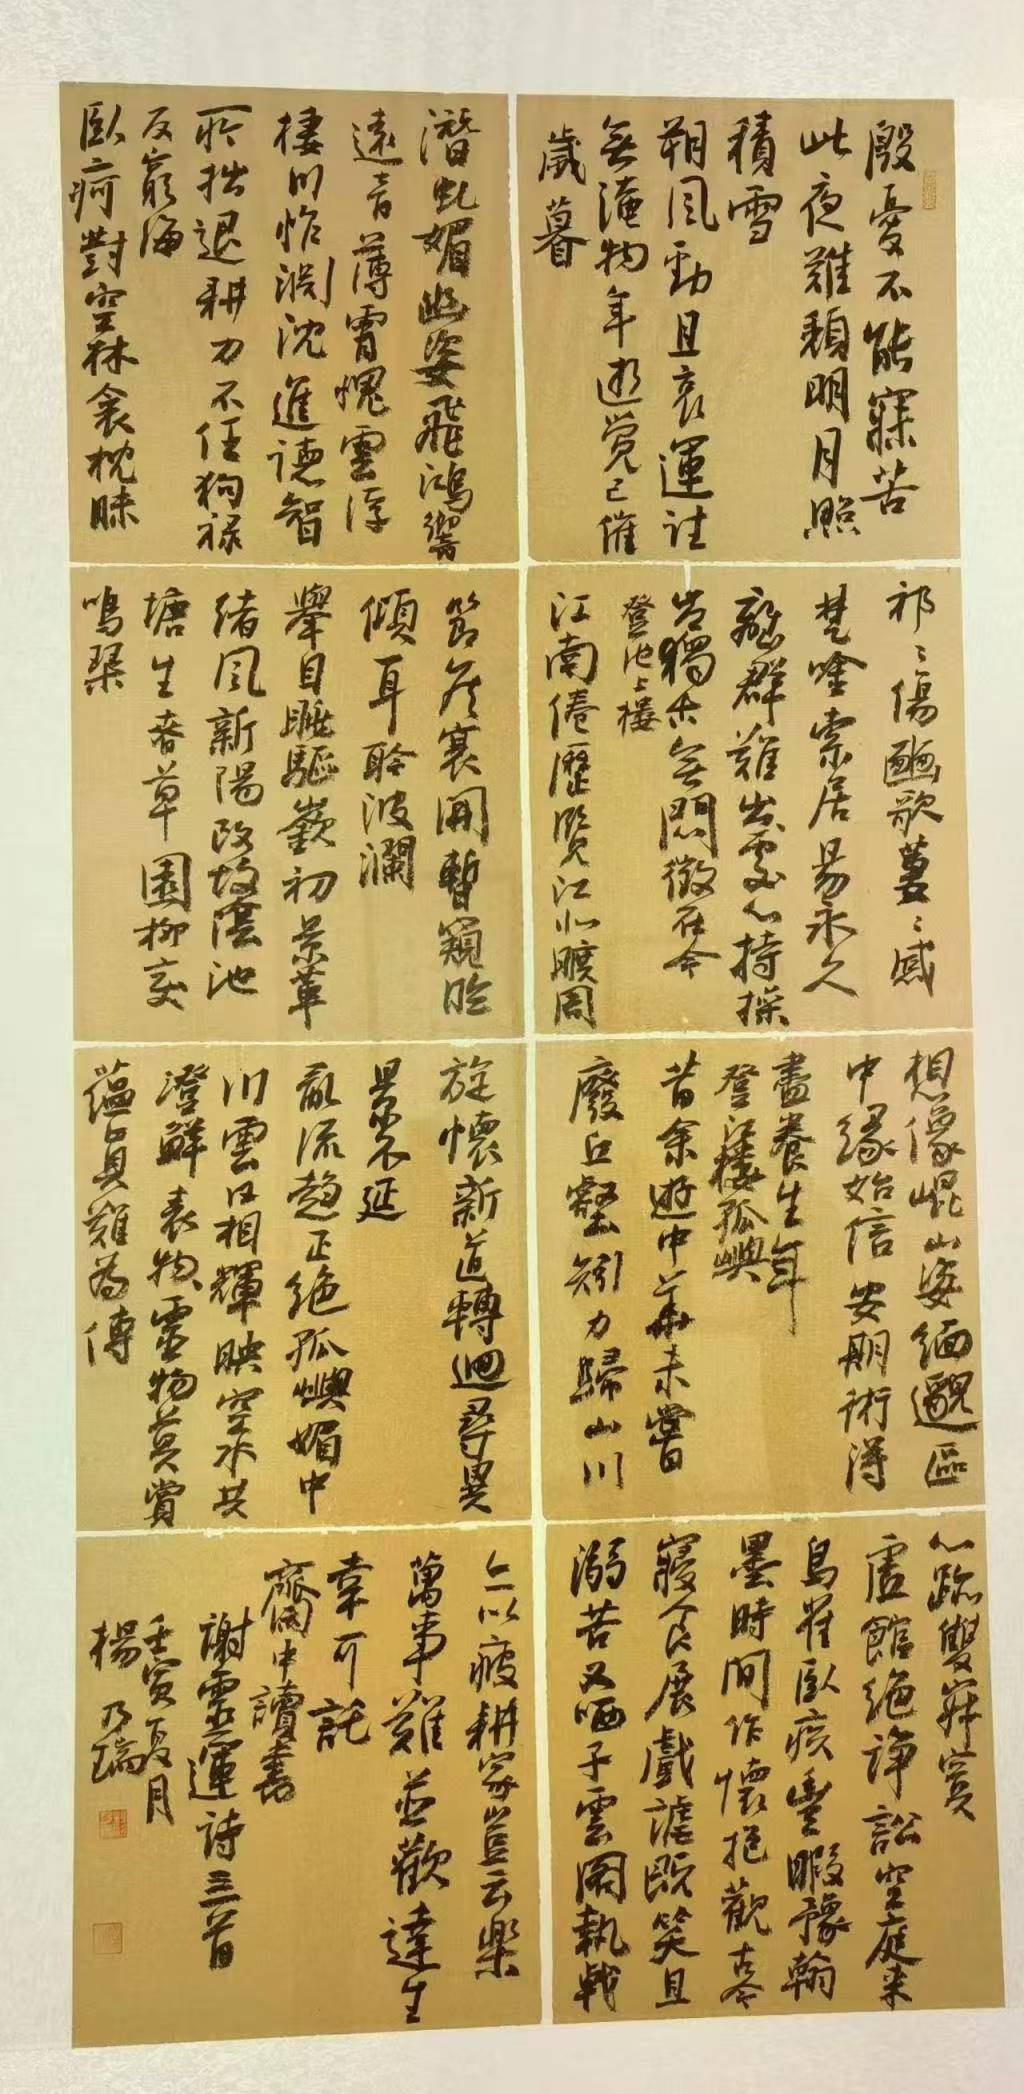 殷憂不能寐苦
此夜難頹明月照
積雪
朔風勁且哀運往
無淹物年逝覺已催
歲暮
潛虬媚幽姿飛鴻響
遠音薄霄愧雲浮
棲川怍淵沈進德智
所拙退耕力不任狥祿
反窮海
臥痾對空林衾枕昧
節候褰開暫窺臨
傾耳聆波瀾
舉目眺嶇嶔初景革
緒風新陽改故陰池
塘生春草園柳變
鳴禽
祁〻傷豳歌萋〻感
楚吟索居易永久
離群難處心持操
豈獨古無悶徵在今
登池上樓
江南倦歷覽江北曠周
旋懷新道轉迴尋異
景不延
亂流趨正絕孤嶼媚中
川雲日相輝映空水共
澄鮮表物靈物莫賞
蘊真難為傳
想像崐山姿緬邈區
中緣始信安期術得
盡養生年
登江樓孤嶼
昔余遊中華未嘗
廢丘壑矧力歸山川
心跡雙寂寞
虛館絕諍訟空庭來
鳥雀臥疾豐暇豫翰
墨時間作懷抱觀古今
寢食展戲謔既笑且
溺苦又哂子雲閣執戟
亦以疲耕家豈云樂
萬事難並歡達生
幸可託
齋中讀書
謝靈運詩三首
壬寅夏月
楊乃瑞